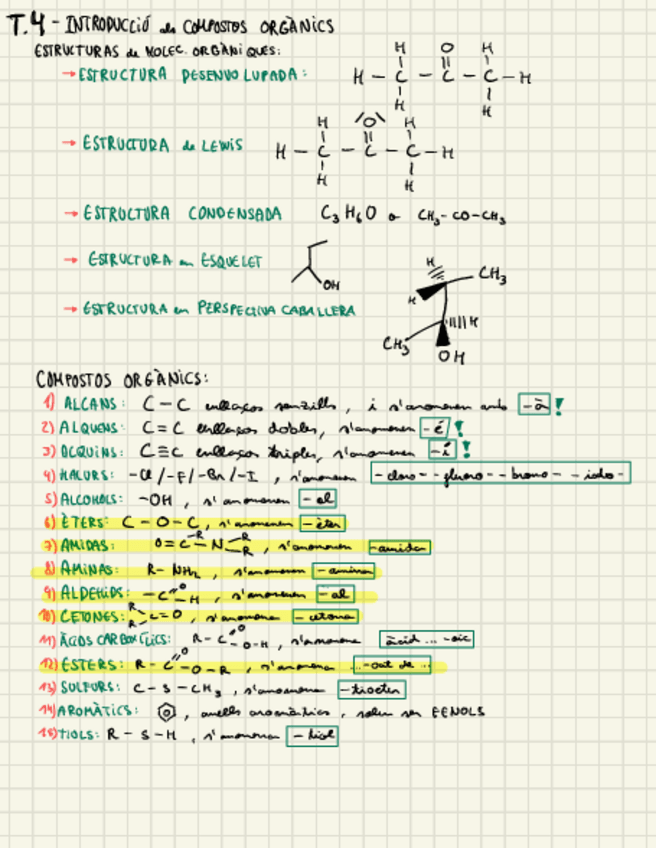 T.4 - INTRODUCCIÓ als COMPOSTOS ORGÀNICS
ESTRUCTURAS de MOLEC. ORGÀNIQUES:
→ ESTRUCTURA DESENVOLUPADA:
H O H
H - C - C - C - H
H H
→ ESTRUCTURA de LEWIS
H O H
H - C - C - C - H
H H
→ ESTRUCTURA CONDENSADA C₃H₆O o CH₃-CO-CH₃
→ ESTRUCTURA en ESQUELET
OH
→ ESTRUCTURA en PERSPECTIVA CABALLERA
H CH₃
H
H
CH₃
OH
COMPOSTOS ORGÀNICS:
1) ALCANS: C-C enllaços senzills, i s'anomenen amb -à !
2) ALQUENS: C=C enllaços dobles, s'anomenen -é !
3) ALQUINS: C≡C enllaços triples, s'anomenen -í !
4) HALURS: -Cl/-F/-Br/-I, s'anomenen -cloro- -fluoro- -bromo- -iodo-
5) ALCOHOLS: -OH, s'anomenen -ol
6) ÈTERS: C-O-C, s'anomenen -èter
7) AMIDAS: O=C-N R R R, s'anomenen -amida
8) AMINAS: R-NH₂, s'anomenen -amina
9) ALDEHIDS: -C O H, s'anomenen -al
10) CETONES: R R C=O, s'anomena -cetona
11) ÀCIDS CARBOXÍLICS: R-C O O-H, s'anomena àcid ... -oic
12) ESTERS: R-C O O-R, s'anomena ...-oat de ...
13) SULFURS: C-S-CH₃, s'anomena -tioeter
14) AROMÀTICS: , anells aromàtics, solen ser FENOLS
15) TIOLS: R-S-H, s'anomenen -tiol